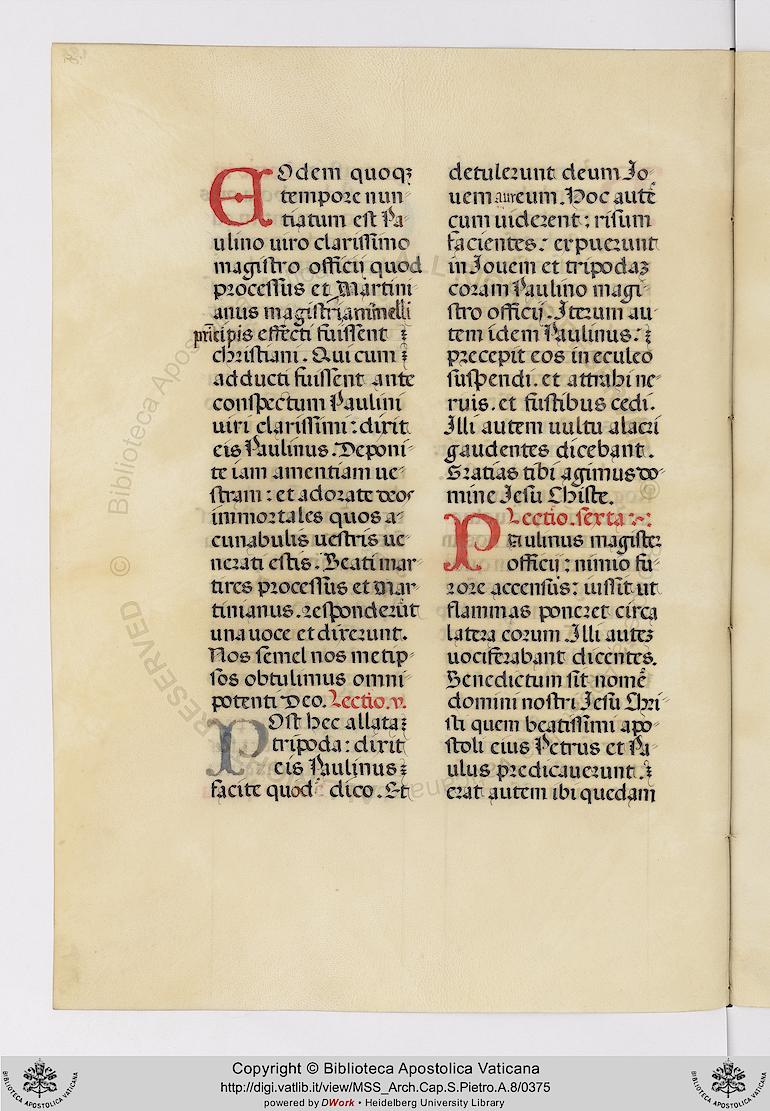 EOdem quoqꝫ
tempore nun
tiatum est Pa
ulino uiro clarissimo
magistro officij quod
processus et Martini
anus magistriani melli
principis effecti fuissent
christiani. Qui cum
adducti fuissent ante
conspectum Paulini
uiri clarissimi: dixit
eis Paulinus. Deponi
te iam amentiam ue
stram: et adorate deos
immortales quos a
cunabulis uestris ue
nerati estis. Beati mar
tires processus et Mar
tinianus. responderūt
una uoce et dixerunt.
Nos semel nos metip
sos obtulimus omni
potenti Deo. Lectio. v.
POst hec allata
tripoda: dixit
eis Paulinus
facite quod dico. Et
detulerunt deum Jo
uem aureum. Hoc autē
cum uiderent: risum
facientes: expuerunt
in Jouem et tripodaꝫ
coram Paulino magi
stro officij. Iterum au
tem idem Paulinus:
precepit eos in eculeo
suspendi. et attrahi ne
ruis. et fustibus cedi.
Illi autem uultu alacri
gaudentes dicebant.
Gratias tibi agimus do
mine Jesu Christe.
Lectio. sexta:
PAulinus magister
officij: nimio fu
rore accensus: iussit ut
flammas poneret circa
latera eorum. Illi auteꝫ
uociferabant dicentes.
Benedictum sit nomē
domini nostri Jesu Chri
sti quem beatissimi apo
stoli eius Petrus et Pa
ulus predicauerunt.
erat autem ibi quedam
Copyright © Biblioteca Apostolica Vaticana
http://digi.vatlib.it/view/MSS_Arch.Cap.S.Pietro.A.8/0375
powered by DWork • Heidelberg University Library